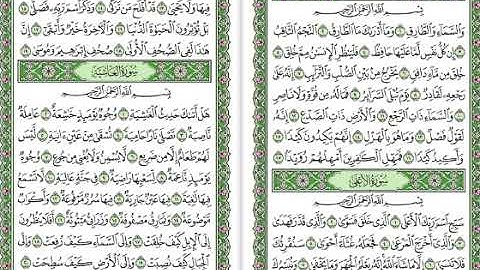 بِسْمِ اللَّهِ الرَّحْمَٰنِ الرَّحِيمِ
وَالسَّمَاءِ وَالطَّارِقِ ۝١ وَمَا أَدْرَاكَ مَا الطَّارِقُ ۝٢ النَّجْمُ الثَّاقِبُ
۝٣ إِن كُلُّ نَفْسٍ لَّمَّا عَلَيْهَا حَافِظٌ ۝٤ فَلْيَنظُرِ الْإِنسَانُ مِمَّ خُلِقَ
۝٥ خُلِقَ مِن مَّاءٍ دَافِقٍ ۝٦ يَخْرُجُ مِن بَيْنِ الصُّلْبِ وَالتَّرَائِبِ ۝٧ إِنَّهُ عَلَىٰ
رَجْعِهِ لَقَادِرٌ ۝٨ يَوْمَ تُبْلَى السَّرَائِرُ ۝٩ فَمَا لَهُ مِن قُوَّةٍ وَلَا نَاصِرٍ
۝١٠ وَالسَّمَاءِ ذَاتِ الرَّجْعِ ۝١١ وَالْأَرْضِ ذَاتِ الصَّدْعِ ۝١٢ إِنَّهُ
لَقَوْلٌ فَصْلٌ ۝١٣ وَمَا هُوَ بِالْهَزْلِ ۝١٤ إِنَّهُمْ يَكِيدُونَ كَيْدًا ۝١٥
وَأَكِيدُ كَيْدًا ۝١٦ فَمَهِّلِ الْكَافِرِينَ أَمْهِلْهُمْ رُوَيْدًا ۝١٧
سُورَةُ الْأَعْلَىٰ
بِسْمِ اللَّهِ الرَّحْمَٰنِ الرَّحِيمِ
سَبِّحِ اسْمَ رَبِّكَ الْأَعْلَى ۝١ الَّذِي خَلَقَ فَسَوَّىٰ ۝٢ وَالَّذِي قَدَّرَ فَهَدَىٰ
۝٣ وَالَّذِي أَخْرَجَ الْمَرْعَىٰ ۝٤ فَجَعَلَهُ غُثَاءً أَحْوَىٰ ۝٥ سَنُقْرِئُكَ
فِيهَا وَلَا يَحْيَىٰ ۝١٣ قَدْ أَفْلَحَ مَن تَزَكَّىٰ ۝١٤ وَذَكَرَ اسْمَ رَبِّهِ فَصَلَّىٰ ۝١٥
بَلْ تُؤْثِرُونَ الْحَيَاةَ الدُّنْيَا ۝١٦ وَالْآخِرَةُ خَيْرٌ وَأَبْقَىٰ ۝١٧ إِنَّ
هَٰذَا لَفِي الصُّحُفِ الْأُولَىٰ ۝١٨ صُحُفِ إِبْرَاهِيمَ وَمُوسَىٰ ۝١٩
سُورَةُ الْغَاشِيَةِ
بِسْمِ اللَّهِ الرَّحْمَٰنِ الرَّحِيمِ
هَلْ أَتَاكَ حَدِيثُ الْغَاشِيَةِ ۝١ وُجُوهٌ يَوْمَئِذٍ خَاشِعَةٌ ۝٢ عَامِلَةٌ
نَّاصِبَةٌ ۝٣ تَصْلَىٰ نَارًا حَامِيَةً ۝٤ تُسْقَىٰ مِنْ عَيْنٍ آنِيَةٍ ۝٥ لَّيْسَ
لَهُمْ طَعَامٌ إِلَّا مِن ضَرِيعٍ ۝٦ لَّا يُسْمِنُ وَلَا يُغْنِي مِن جُوعٍ ۝٧ وُجُوهٌ
يَوْمَئِذٍ نَّاعِمَةٌ ۝٨ لِّسَعْيِهَا رَاضِيَةٌ ۝٩ فِي جَنَّةٍ عَالِيَةٍ ۝١٠ لَّا تَسْمَعُ
فِيهَا لَاغِيَةً ۝١١ فِيهَا عَيْنٌ جَارِيَةٌ ۝١٢ فِيهَا سُرُرٌ مَّرْفُوعَةٌ ۝١٣ وَأَكْوَابٌ
مَّوْضُوعَةٌ ۝١٤ وَنَمَارِقُ مَصْفُوفَةٌ ۝١٥ وَزَرَابِيُّ مَبْثُوثَةٌ ۝١٦ أَفَلَا يَنظُرُونَ
إِلَى الْإِبِلِ كَيْفَ خُلِقَتْ ۝١٧ وَإِلَى السَّمَاءِ كَيْفَ رُفِعَتْ ۝١٨
وَإِلَى الْجِبَالِ كَيْفَ نُصِبَتْ ۝١٩ وَإِلَى الْأَرْضِ كَيْفَ سُطِحَتْ ۝٢٠